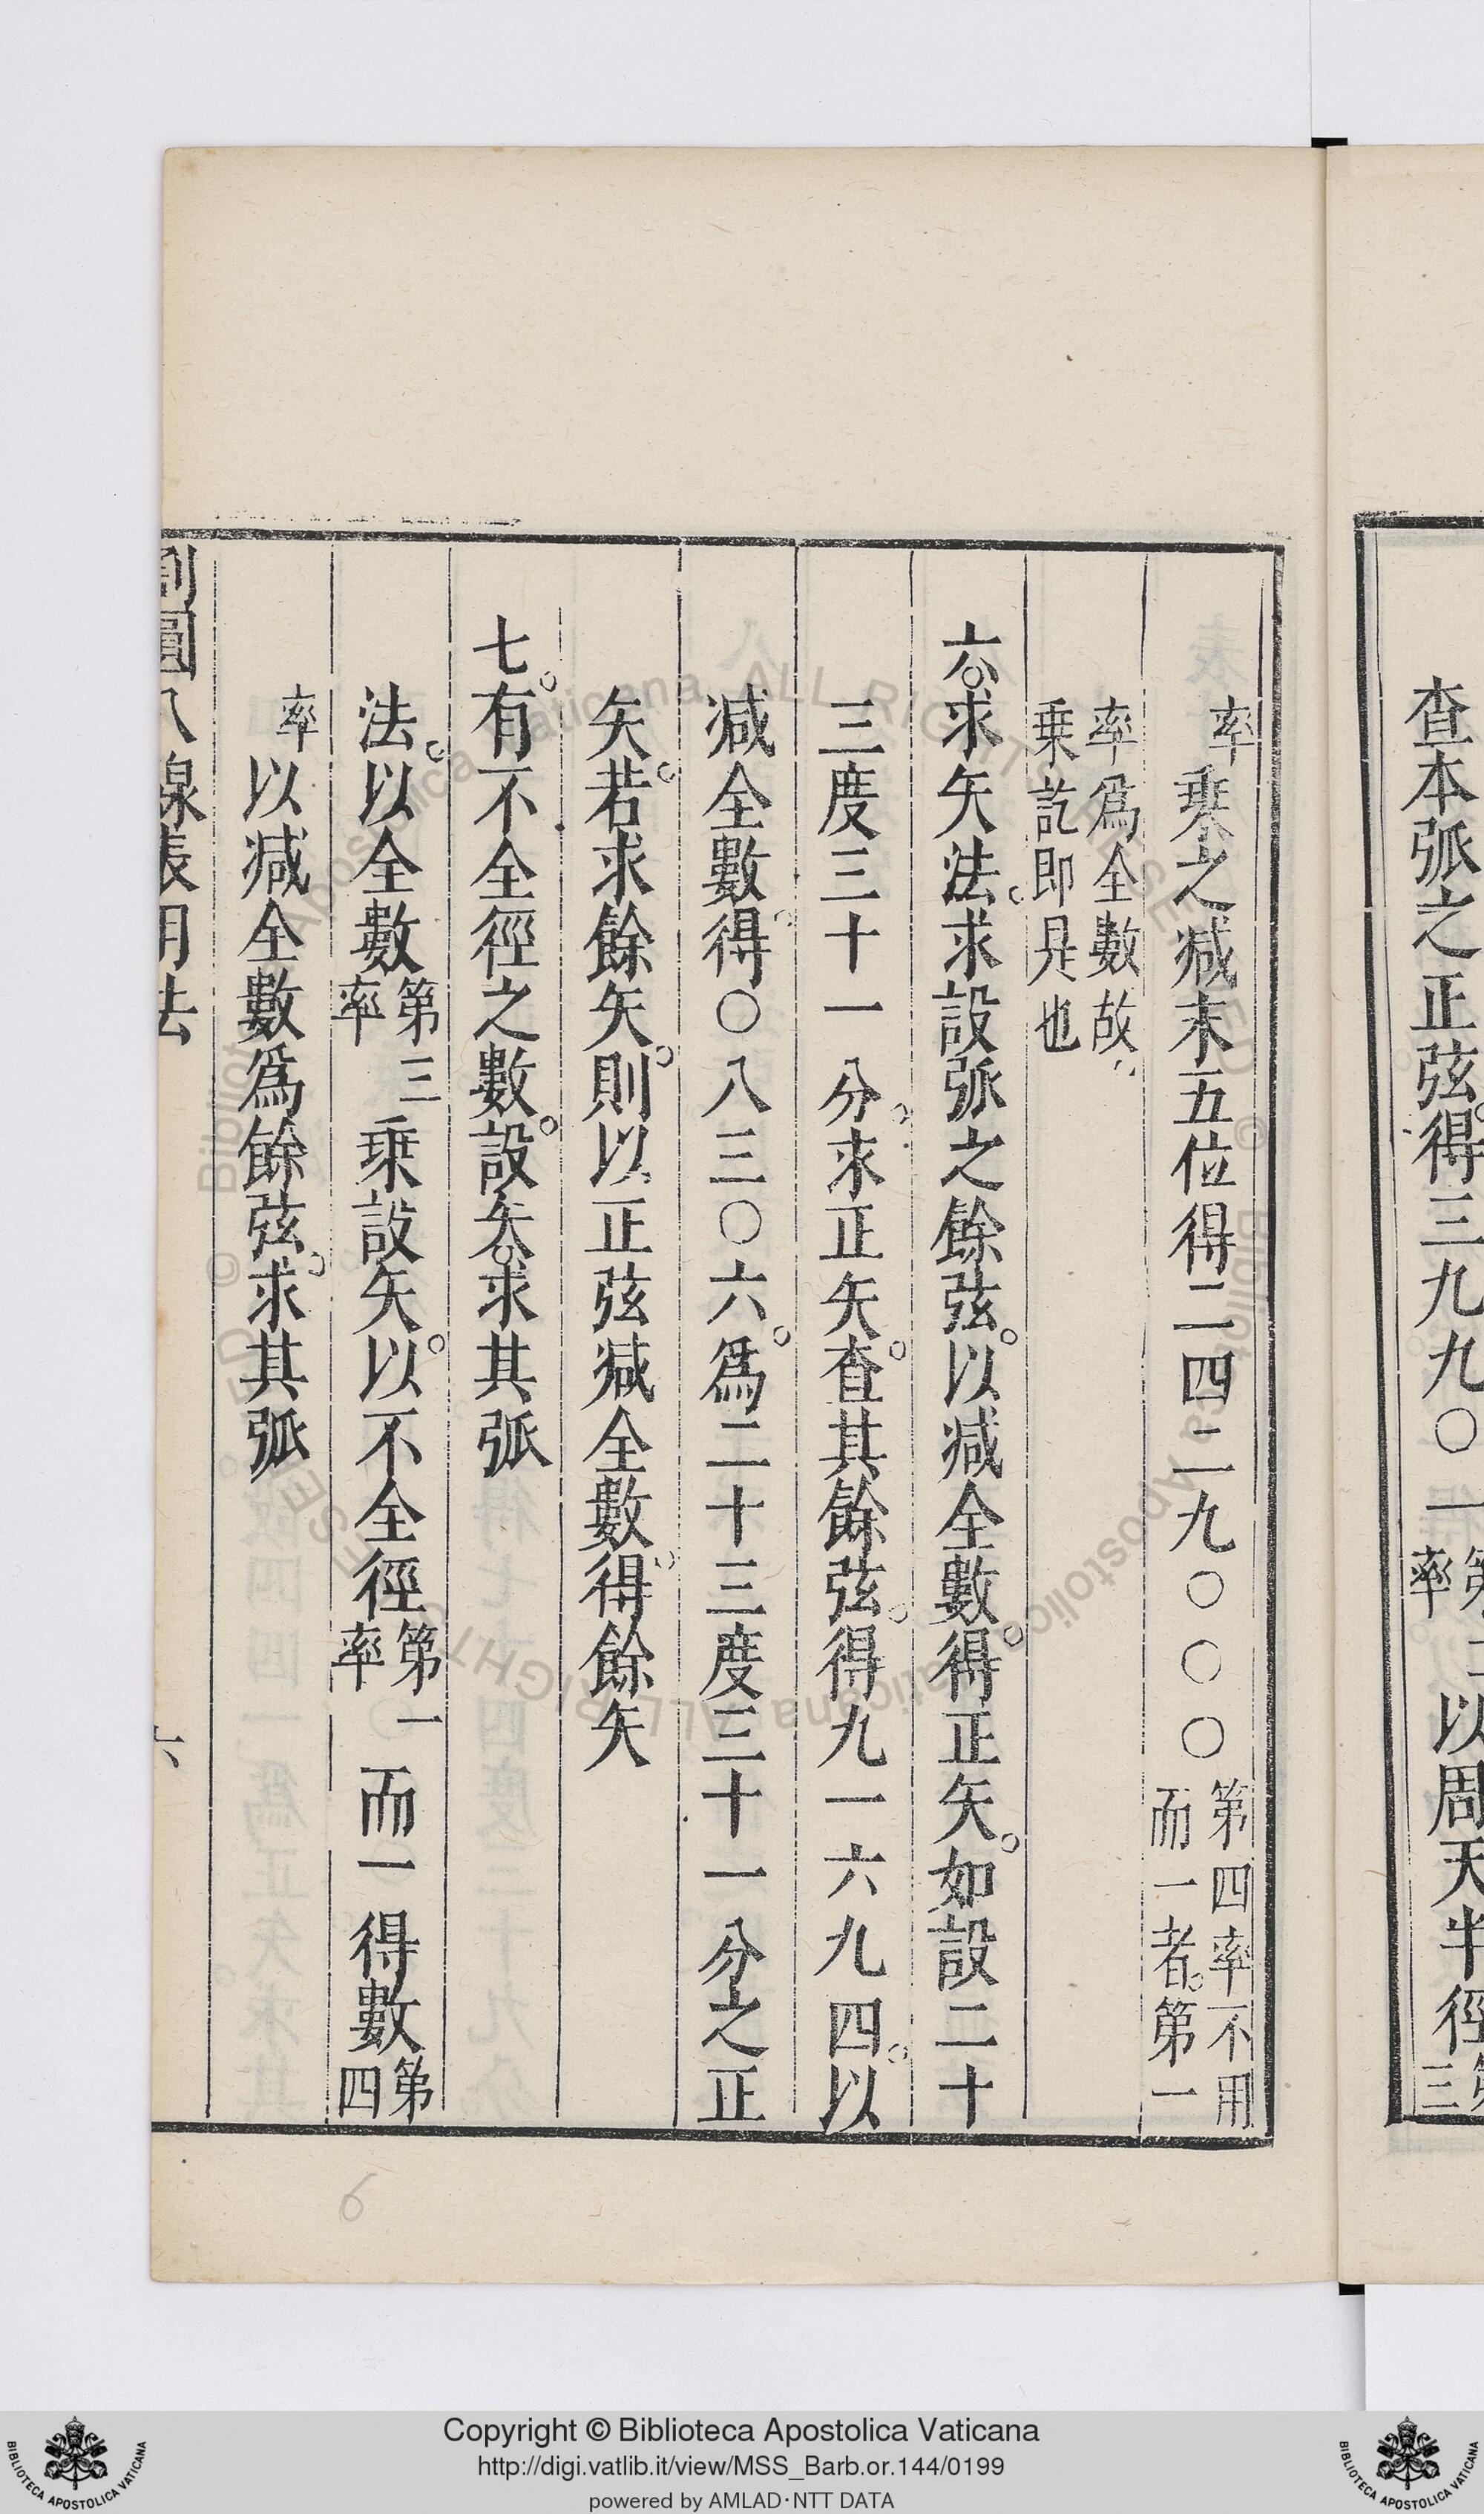 查本弧之正弦。得三九九〇一 率 以周天半徑 三
率 乗之减末五位得二四二九〇〇〇 第四率不用而一者。第一
率爲全數故乗訖即是也
六。求矢法。求設弧之餘弦。以减全數。得正矢。如設二十
三度三十一分。求正矢。查其餘弦。得九一六九四。以
减全數。得〇八三〇六。爲二十三度三十一分之正
矢。若求餘矢。則以正弦减全數。得餘矢
七。有不全徑之數。設矢。求其弧
法。以全數 第三率 乗設矢。以不全徑 第一率 而一得數 第四
率 以减全數爲餘弦。求其弧
割圓八線表用法
六
6
Copyright © Biblioteca Apostolica Vaticana
http://digi.vatlib.it/view/MSS_Barb.or.144/0199
powered by AMLAD·NTT DATA
BIBLIOTECA APOSTOLICA VATICANA
BIBLIOTECA APOSTOLICA VATICANA